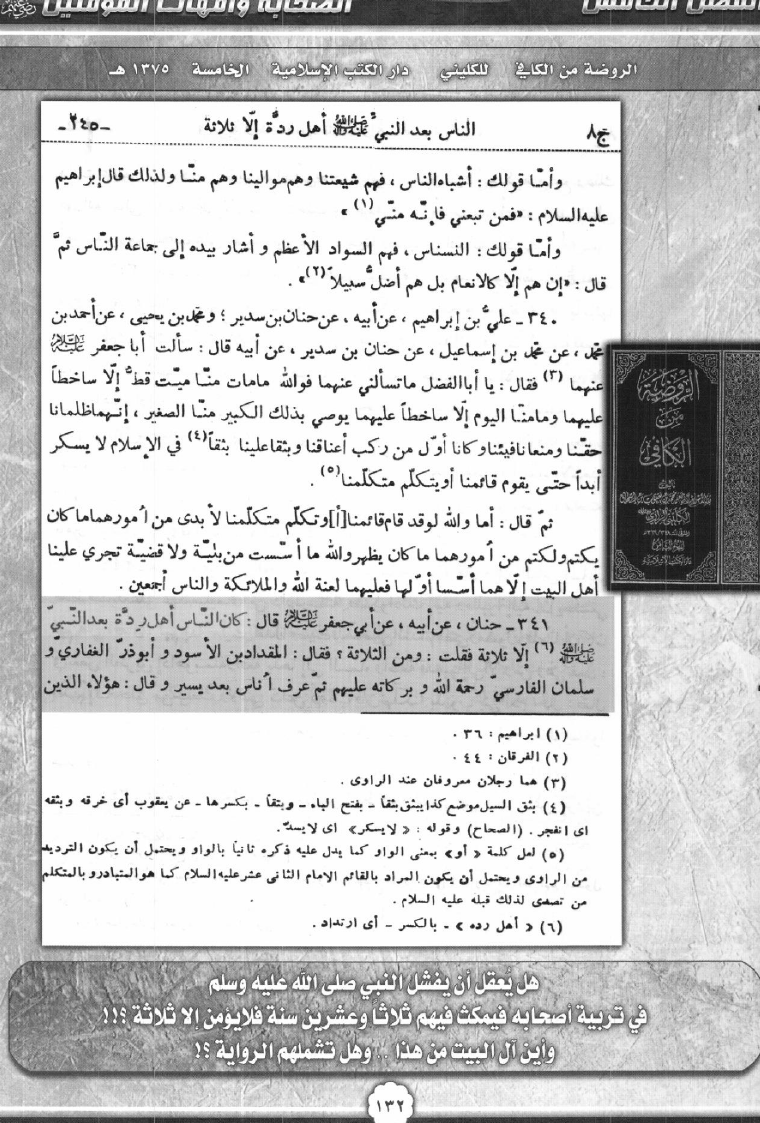 الفصل الخامس
الصحابة وأمهات المؤمنين
الروضة من الكافي للكليني دار الكتب الإسلامية الخامسة ١٣٧٥ هـ
ج٨ الناس بعد النبيّ ﷺ أهل ردّة إلّا ثلاثة -٢٤٥-
وأمّا قولك : أشباه الناس ، فهم شيعتنا وهم موالينا وهم منّا ولذلك قال إبراهيم
عليه السلام : «فمن تبعني فإنّه منّي (١) »
وأمّا قولك : النسناس ، فهم السواد الأعظم و أشار بيده إلى جماعة النّاس ثمَّ
قال : «إن هم إلّا كالانعام بل هم أضلُّ سبيلاً (٢)» .
٣٤٠ - عليُّ بن إبراهيم ، عن أبيه ، عن حنان بن سدير ؛ ومحمّد بن يحيى ، عن أحمد بن
محمّد ، عن محمّد بن إسماعيل ، عن حنان بن سدير ، عن أبيه قال : سألت أبا جعفر عليه السلام
عنهما (٣) فقال : يا أبا الفضل ما تسألني عنهما فوالله مامات منّا ميّت قطُّ إلّا ساخطاً
عليهما ومامنّا اليوم إلّا ساخطاً عليهما يوصي بذلك الكبير منّا الصغير ، إنّهما ظلمانا
حقّنا ومنعانا فيئنا وكانا أوّل من ركب أعناقنا وبثقا علينا بثقاً (٤) في الإسلام لا يسكر
أبداً حتّى يقوم قائمنا أو يتكلّم متكلّمنا (٥) .
ثمّ قال : أما والله لو قد قام قائمنا [أ] و تكلّم متكلّمنا لأبدى من أُمورهما ما كان
يكتم ولكتم من أُمورهما ما كان يظهر والله ما أسّست من بليّة ولا قضيّة تجري علينا
أهل البيت إلّا هما أسّسا أوّلها فعليهما لعنة الله والملائكة والناس أجمعين .
٣٤١ - حنان ، عن أبيه ، عن أبي جعفر عليه السلام قال : كان النّاس أهل ردَّة بعد النبيّ
ﷺ (٦) إلّا ثلاثة فقلت : ومن الثلاثة ؟ فقال : المقداد بن الأسود و أبوذرّ الغفاري و
سلمان الفارسيّ رحمة الله و بركاته عليهم ثمّ عرف أُناس بعد يسير و قال : هؤلاء الذين
(١) ابراهيم : ٣٦ .
(٢) الفرقان : ٤٤ .
(٣) هما رجلان معروفان عند الراوى .
(٤) بثق السيل موضع كذا يبثق بثقاً - بفتح الباء - وبثقاً - بكسرها - عن يعقوب أى خرقه وبثقه
اى انفجر . (الصحاح) وقوله : « لايسكر» اى لايسدّ .
(٥) لعل كلمة « أو» بمعنى الواو كما يدل عليه ذكره ثانياً بالواو ويحتمل أن يكون الترديد
من الراوى ويحتمل أن يكون المراد بالقائم الامام الثانى عشر عليه السلام كما هو المتبادر و بالمتكلم
من تصدى لذلك قبله عليه السلام .
(٦) « أهل رده » - بالكسر - أى ارتداد .
الروضة
من
الكافي
هل يُعقل أن يفشل النبي صلى الله عليه وسلم
في تربية أصحابه فيمكث فيهم ثلاثا وعشرين سنة فلايؤمن الا ثلاثة ؟!!
وأين آل البيت من هذا .. وهل تشملهم الرواية ؟!
١٣٢